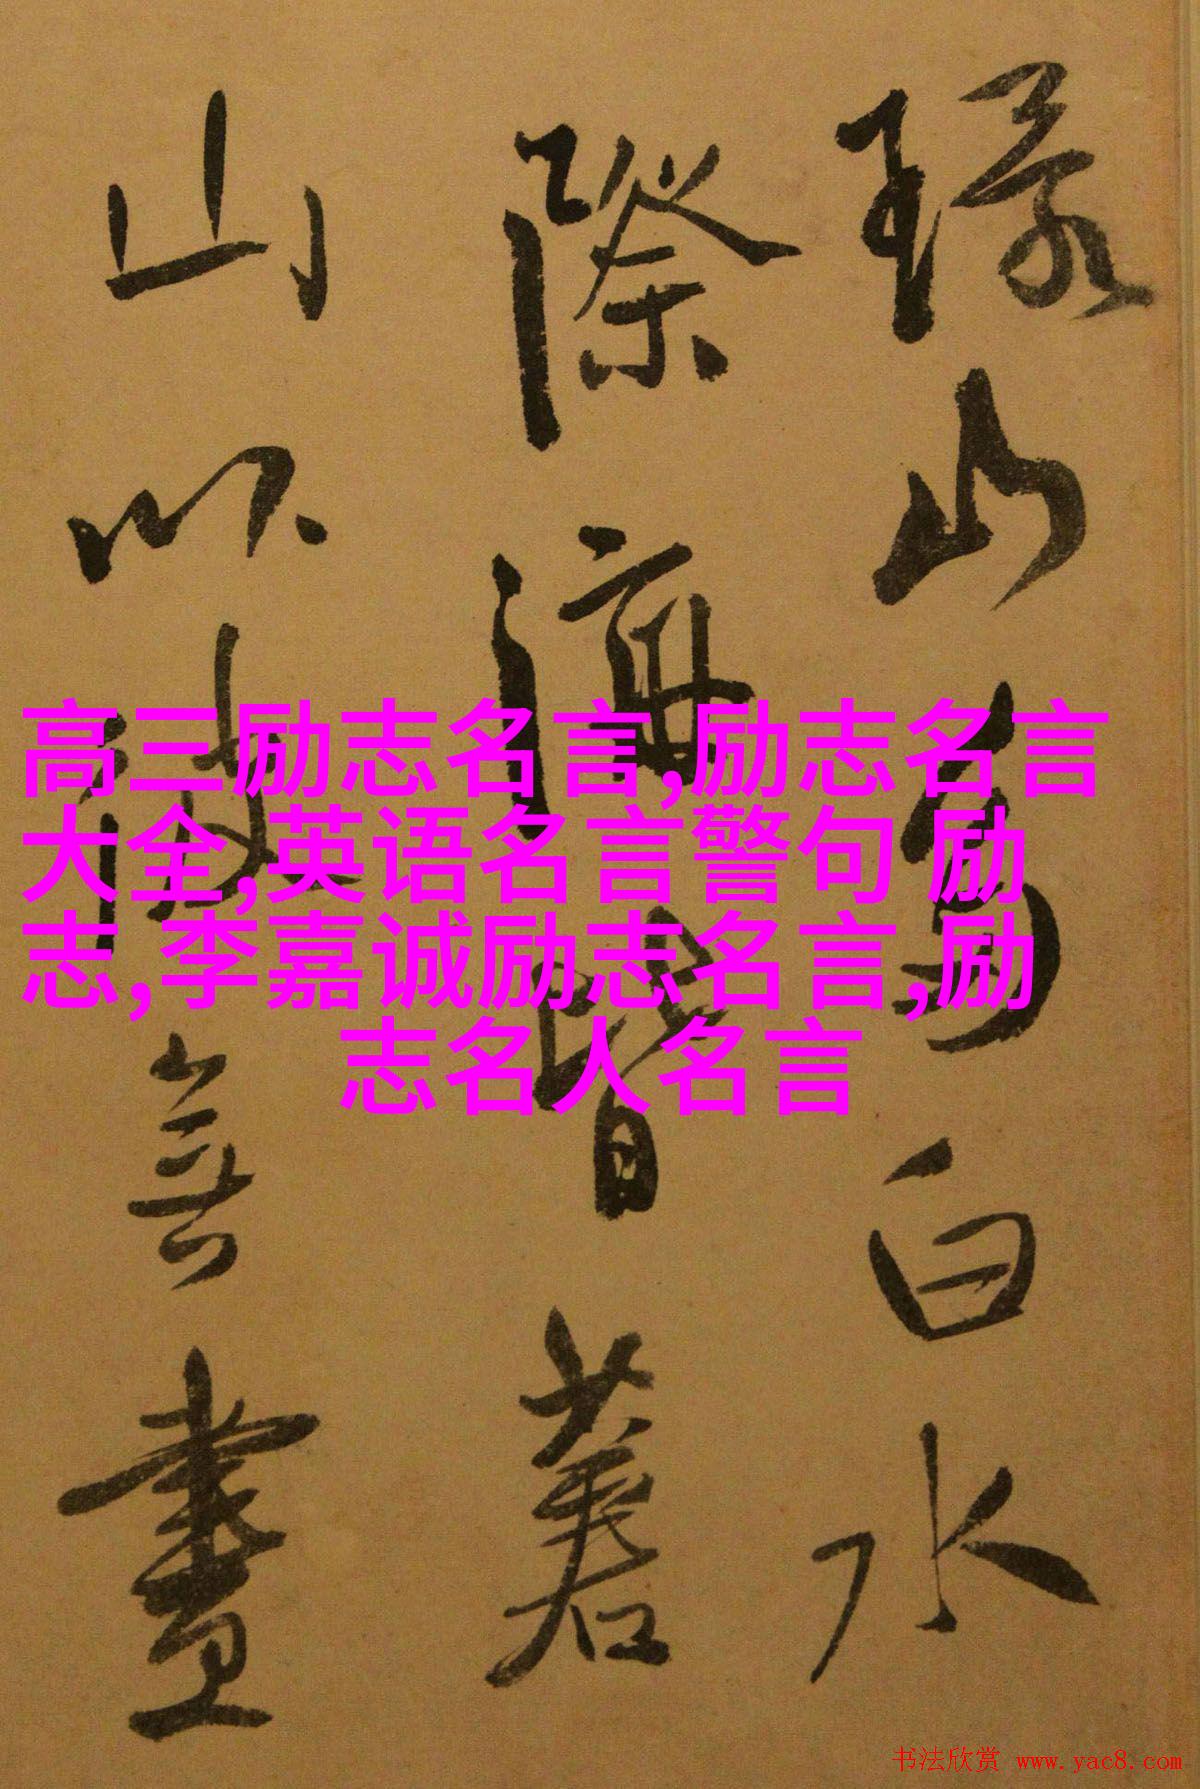 山 白水
際 皆著
山以 無畫
高三励志名言,励志名言
大全,英语名言警句 励
志,李嘉诚励志名言,励
志名人名言
书法欣赏 www.yac8.com